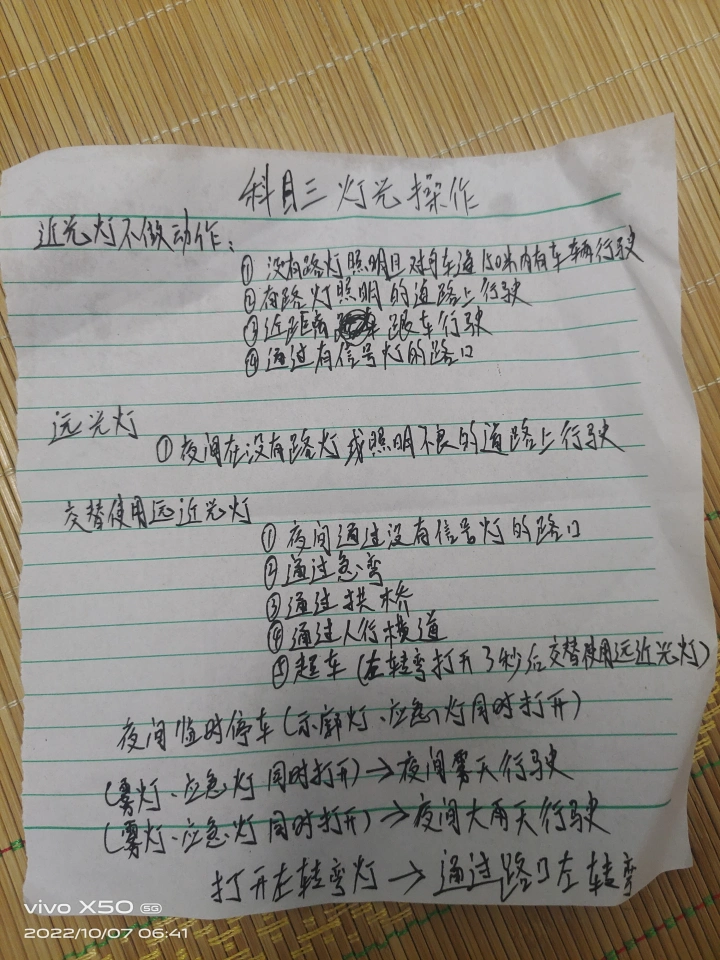 科目三灯光操作
近光灯不做动作：
①没有路灯照明且对向车道150米内有车辆行驶
②有路灯照明的道路上行驶
③近距离跟车行驶
④通过有信号灯的路口
远光灯
①夜间在没有路灯或照明不良的道路上行驶
交替使用远近光灯
①夜间通过没有信号灯的路口
②通过急弯
③通过拱桥
④通过人行横道
⑤超车(左转弯打开3秒后交替使用远近光灯)
夜间临时停车(示廓灯、应急灯同时打开)
(雾灯、应急灯同时打开)→夜间雾天行驶
(雾灯、应急灯同时打开)→夜间大雨天行驶
打开左转弯灯→通过路口左转弯
vivo X50 5G
2022/10/07 06:41